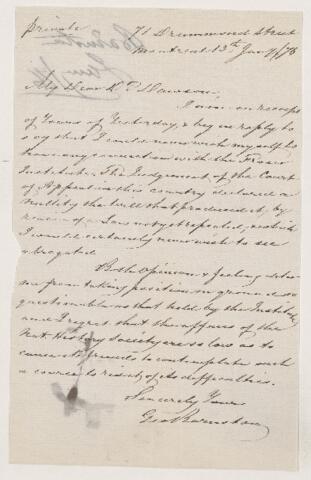 Private
71 Drummond Street
Montreal 13th Jany/78
My Dear Dr Dawson,
I am in receipt
of Yours of Yesterday, & beg in reply to
say that I could not wish myself to
have any connection with the Fraser
Institute. The Judgement of the Court
of Appeal in this country declared a
nullity the will that produced it, by
reason of a Law not yet repealed, & which
I would certainly never wish to see
abrogated.
Both Opinion & feeling deter
me from taking position on ground so
questionable as that held by the Institute,
and I regret that the affairs of the
Nat. History Society are so low as to
cause its friends to contemplate such
a course to rid it of its difficulties.
Sincerely Yours
Geo Barnston